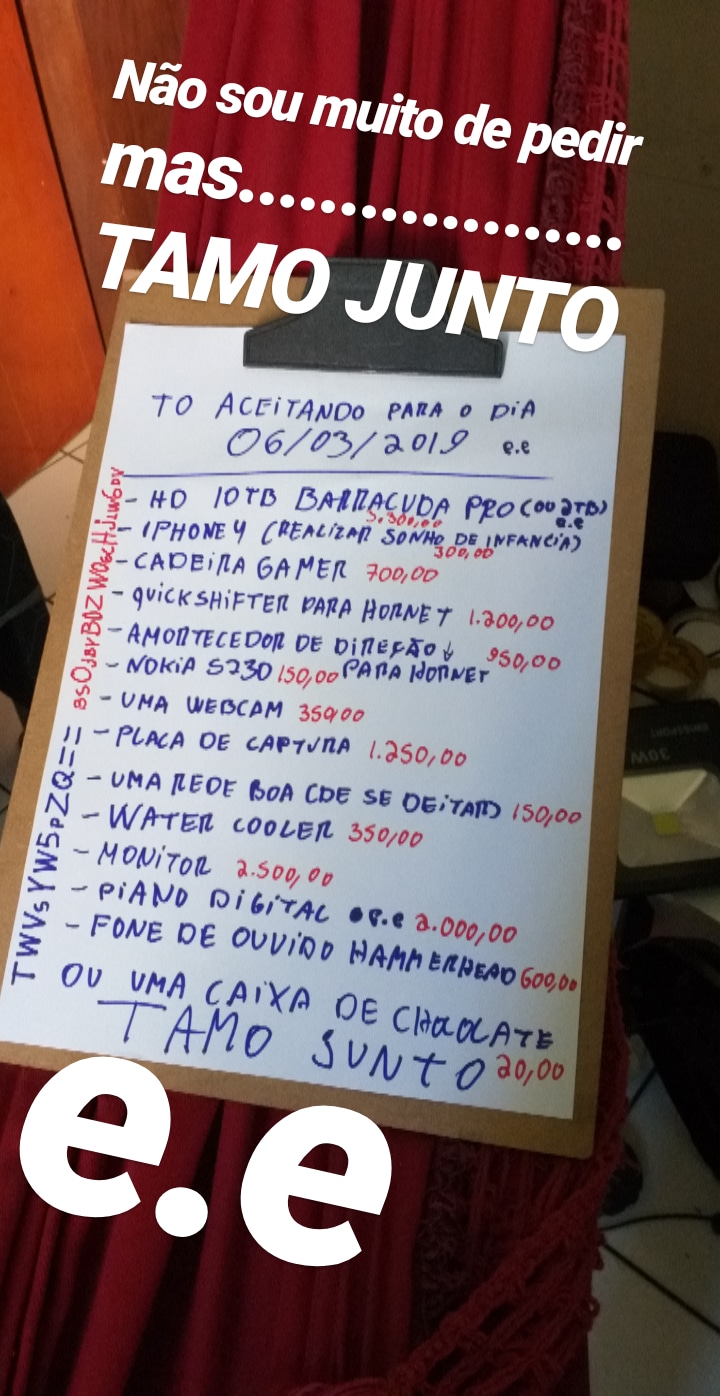 Não sou muito de pedir
mas...................
TAMO JUNTO
TO ACEITANDO PARA O DIA
06/03/2019 e.e
- HD 10TB BARRACUDA PRO (OU 2TB)
3.300,00 e.e
- IPHONE 4 (REALIZAR SONHO DE INFANCIA)
300,00
- CADEIRA GAMER 700,00
- QUICKSHIFTER PARA HORNET 1.200,00
- AMORTECEDOR DE DIREÇÃO ↓ 950,00
- NOKIA 5230 150,00 PARA HORNET
- UMA WEBCAM 350,00
- PLACA DE CAPTURA 1.250,00
- UMA REDE BOA (DE SE DEITAR) 150,00
- WATER COOLER 350,00
- MONITOR 2.500,00
- PIANO DIGITAL e.e 2.000,00
- FONE DE OUVIDO HAMMERHEAD 600,00
OU UMA CAIXA DE CHOCOLATE
TAMO JUNTO 20,00
TWVsYW5pZQ==
e.e